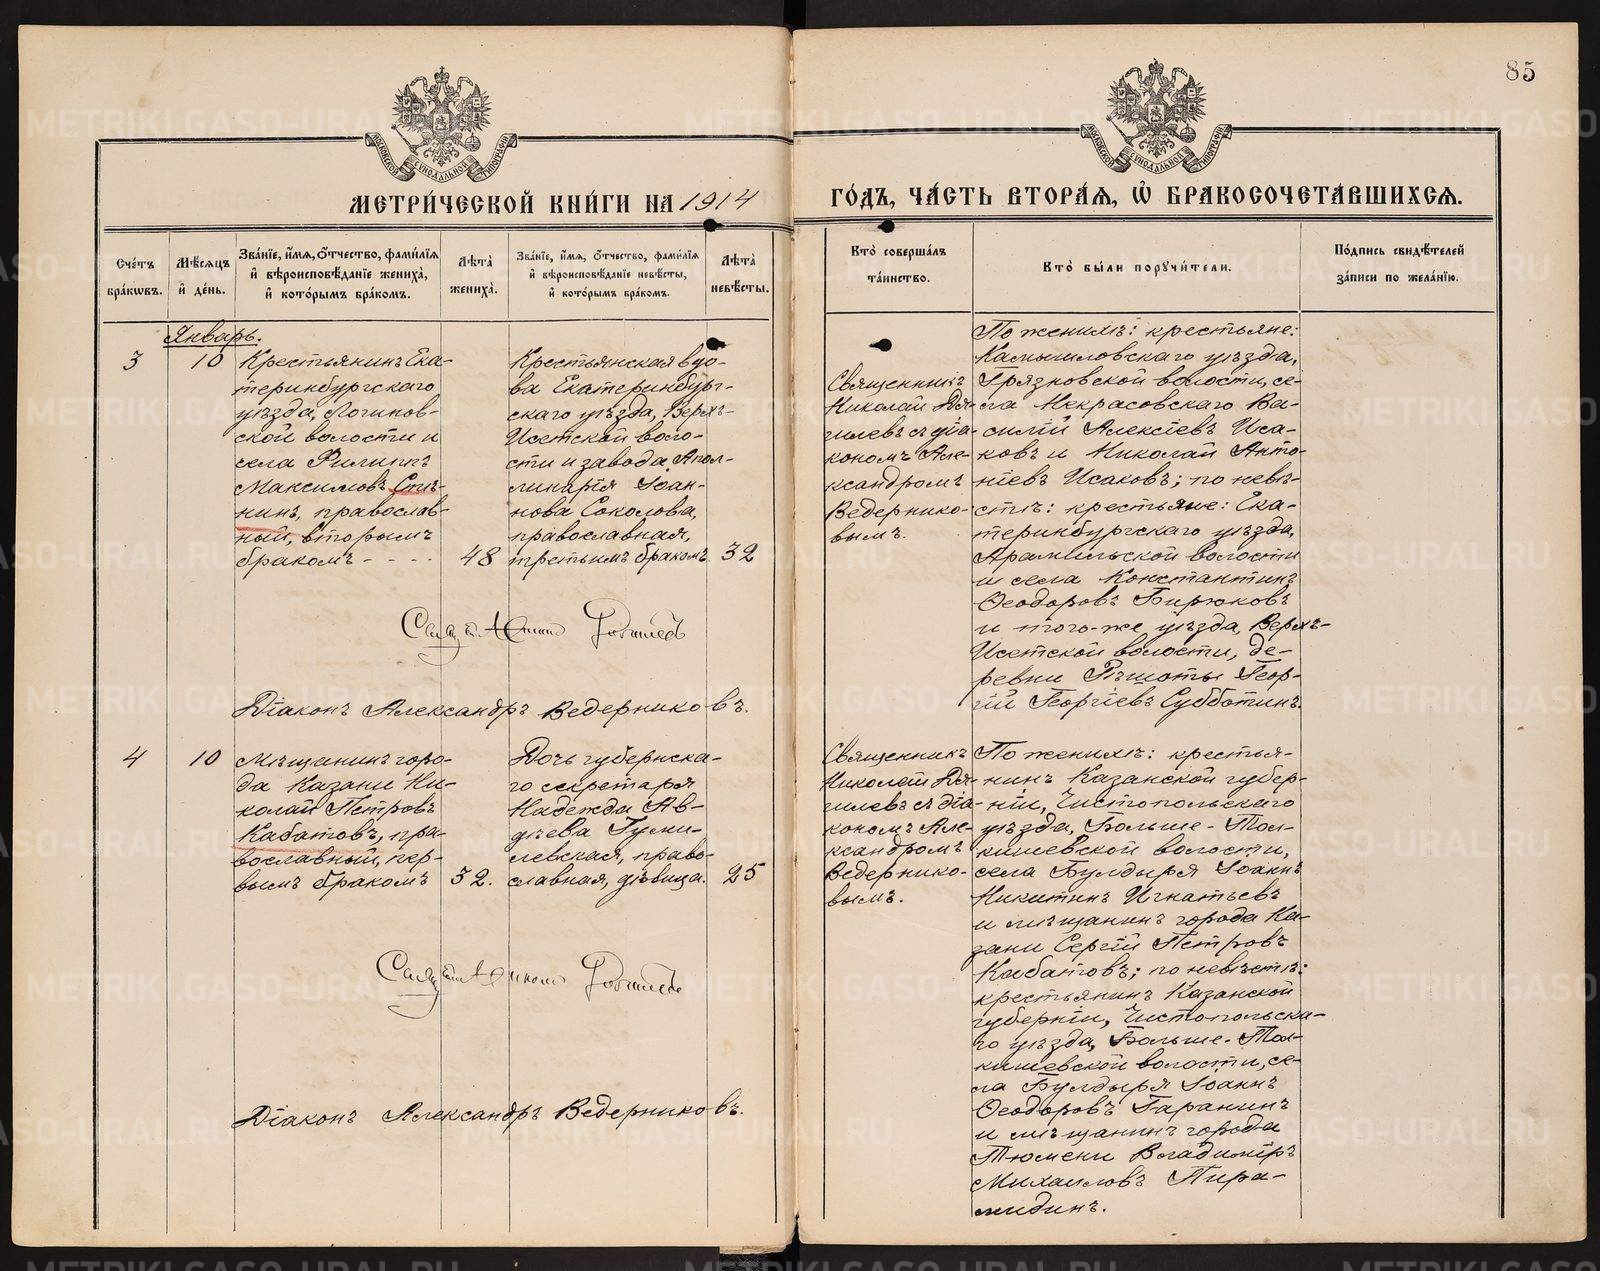 85
МОСКОВСКОЙ СУНОДАЛЬНОЙ ТИПОГРАФІИ
МОСКОВСКОЙ СУНОДАЛЬНОЙ ТИПОГРАФІИ
МЕТРИ́ЧЕСКОЙ КНИ́ГИ НА 1914
ГО́ДЪ, ЧА́СТЬ ВТОРА́Я, Ѡ҆ БРАКОСОЧЕТА́ВШИХСЯ.
Сче́тъ
бра́кѡвъ.
Мѣ́сяцъ
и҆ де́нь.
Зва́нїе, и҆́мя, ѻ҆́тчество, фами́лїя
и҆ вѣроисповѣ́данїе жениха̀,
и҆ кото́рымъ бра́комъ.
Лѣ́та
жениха̀.
Зва́нїе, и҆́мя, ѻ҆́тчество, фами́лїя
и҆ вѣроисповѣ́данїе невѣ́сты,
и҆ кото́рымъ бра́комъ.
Лѣ́та
невѣ́сты.
Кто̀ соверша́лъ
та́инство.
Кто̀ бы́ли порꙋчи́тели.
По́дпись свидѣ́телей
за́писи по жела́нїю.
Январь.
3
10
Крестьянинъ Ека-
теринбургскаго
уѣзда, Логинов-
ской волости и
села Филиппъ
Максимовъ Спи-
нинъ, православ-
ный, вторымъ
бракомъ - - - -
48
Крестьянская вдо-
ва Екатеринбург-
скаго уѣзда, Верхъ-
Исетской воло-
сти и завода Апол-
линарія Іоан-
нова Соколова,
православная,
третьимъ бракомъ
32
Священникъ
Николай
съ діа-
кономъ Але-
ксандромъ
Ведернико-
вымъ.
По женихѣ: крестьяне:
Камышловскаго уѣзда,
Грязновской волости, се-
ла Некрасовскаго Ва-
силій Алексіевъ Иса-
ковъ и Николай Анто-
ніевъ Исаковъ; по невѣ-
стѣ: крестьяне: Ека-
теринбургскаго уѣзда,
Арамильской волости
и села Константинъ
Ѳеодоровъ Бирюковъ
и того-же уѣзда, Верхъ-
Исетской волости, де-
ревни Рѣшоты Геор-
гій Георгіевъ Субботинъ.
Діаконъ Александръ Ведерниковъ.
4
10
Мѣщанинъ горо-
да Казани Ни-
колай Петровъ
Кабатовъ, пра-
вославный, пер-
вымъ бракомъ
32.
Дочь губернска-
го секретаря
Надежда Ав-
дѣева Гуми-
левская, право-
славная, дѣвица.
25
Священникъ
Николай
съ діа-
кономъ Але-
ксандромъ
Ведернико-
вымъ.
По женихѣ: крестья-
нинъ Казанской губер-
ніи, Чистопольскаго
уѣзда, Больше-Тол-
кишевской волости,
села Булдыря Іоаннъ
Никитинъ Игнатьевъ
и мѣщанинъ города Ка-
зани Сергій Петровъ
Кабатовъ; по невѣстѣ:
крестьянинъ Казанской
губерніи, Чистопольска-
го уѣзда, Больше-Тол-
кишевской волости, се-
ла Булдыря Іоаннъ
Ѳеодоровъ Гаранинъ
и мѣщанинъ города
Тюмени Владиміръ
Михаиловъ Пира-
мидинъ.
Діаконъ Александръ Ведерниковъ.
METRIKI.GASO-URAL.RU